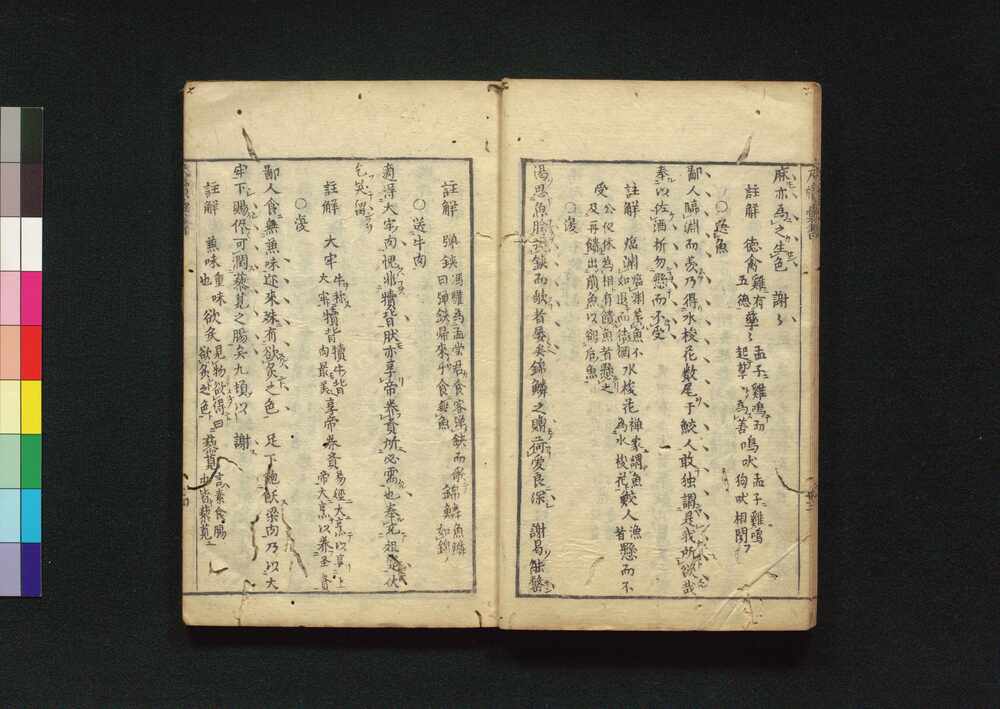 庥亦為之生色　謝〻
註解　徳禽 雞有五徳 孳〻 孟子雞鳴而起孳〻為善 鳴吠 孟子雞鳴狗吠相聞
○送魚
鄙人臨淵而羨乃得水梭花數尾于鮫人敢独謂是我所欲哉
奉以佐酒祈勿懸而不受
註解　臨淵 臨淵羨魚不如退而結網 水梭花 禅家謂魚為水梭花 鮫人 漁者 懸而不
受 公儀休為相有饋魚者懸之及再饋出前魚以
○復
湯思魚膾 鋏而歌者屡矣錦鱗之賜荷愛良深　謝易能罄
註解　弾鋏 馮驩為孟嘗君食客弾鋏而歌曰弾鋏歸來乎食無魚 錦鱗 魚鱗如錦
○送牛肉
適得大牢肉愧非犢背肽亦享帝養賢所必需也奉充俎 伏
乞笑留
註解　大牢 牛 大牢 犢背 犢牛背肉最美 享帝養賢 易經大烹以享上帝大烹以養圣賢
○復
鄙人食無兼味迩來殊有欲炙之色　足下飽飫梁肉乃以大
牢下賜俾可潤藜莧之腸矣九頓以　謝
註解　兼味 重味也 欲炙 見物欲得曰欲炙之色 藜莧 言素食腸中皆藜莧